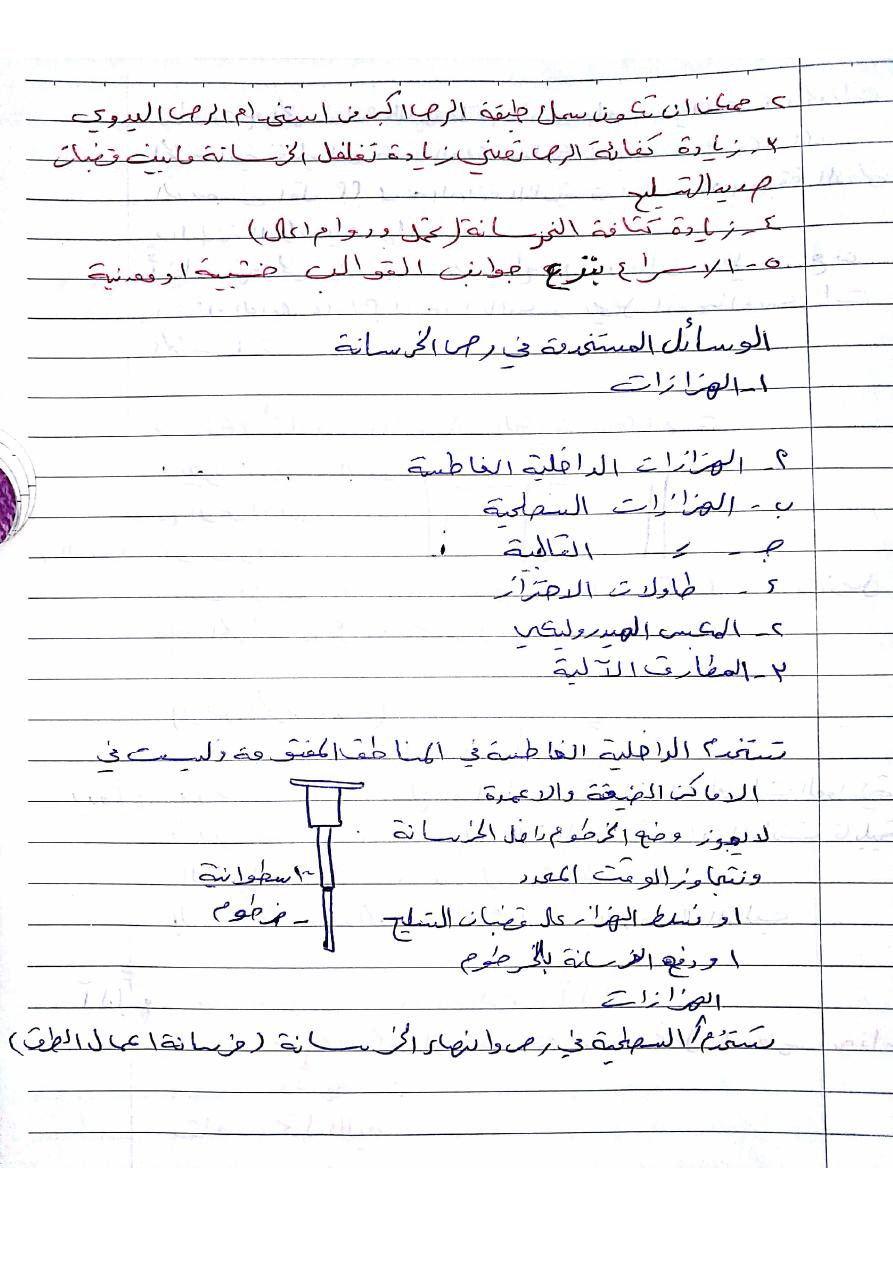 ٢- ممكن ان تكون سمك طبقة الرص اكبر من استخدام الرص اليدوي
٣- زيادة كفائة الرص تعني زيادة تغلغل الخرسانة مابين قضبان
حديد التسليح
٤- زيادة كثافة الخرسانة (تحمل ودوام اعلى)
٥- الاسراع بنزع جوانب القوالب خشبية او معدنية
الوسائل المستخدمة في رص الخرسانة
١- الهزازات
أ- الهزازات الداخلية الغاطسة
ب- الهزازات السطحية
ج- = القالبية
د- طاولات الاهتزاز
٢- المكبس الهيدروليكي
٣- المطارق الآلية
تستخدم الداخلية الغاطسة في المناطق المفتوحة وليست في
الاماكن الضيقة والاعمدة
لايجوز وضع الخرطوم داخل الخرسانة
ونتجاوز الوقت المحدد
- اسطوانية
او نسلط الهزاز على قضبان التسليح
- خرطوم
او دفع الخرسانة بالخرطوم
الهزازات
تستخدم السطحية في رص وانهاء الخرسانة (خرسانة اعمال الطرق)